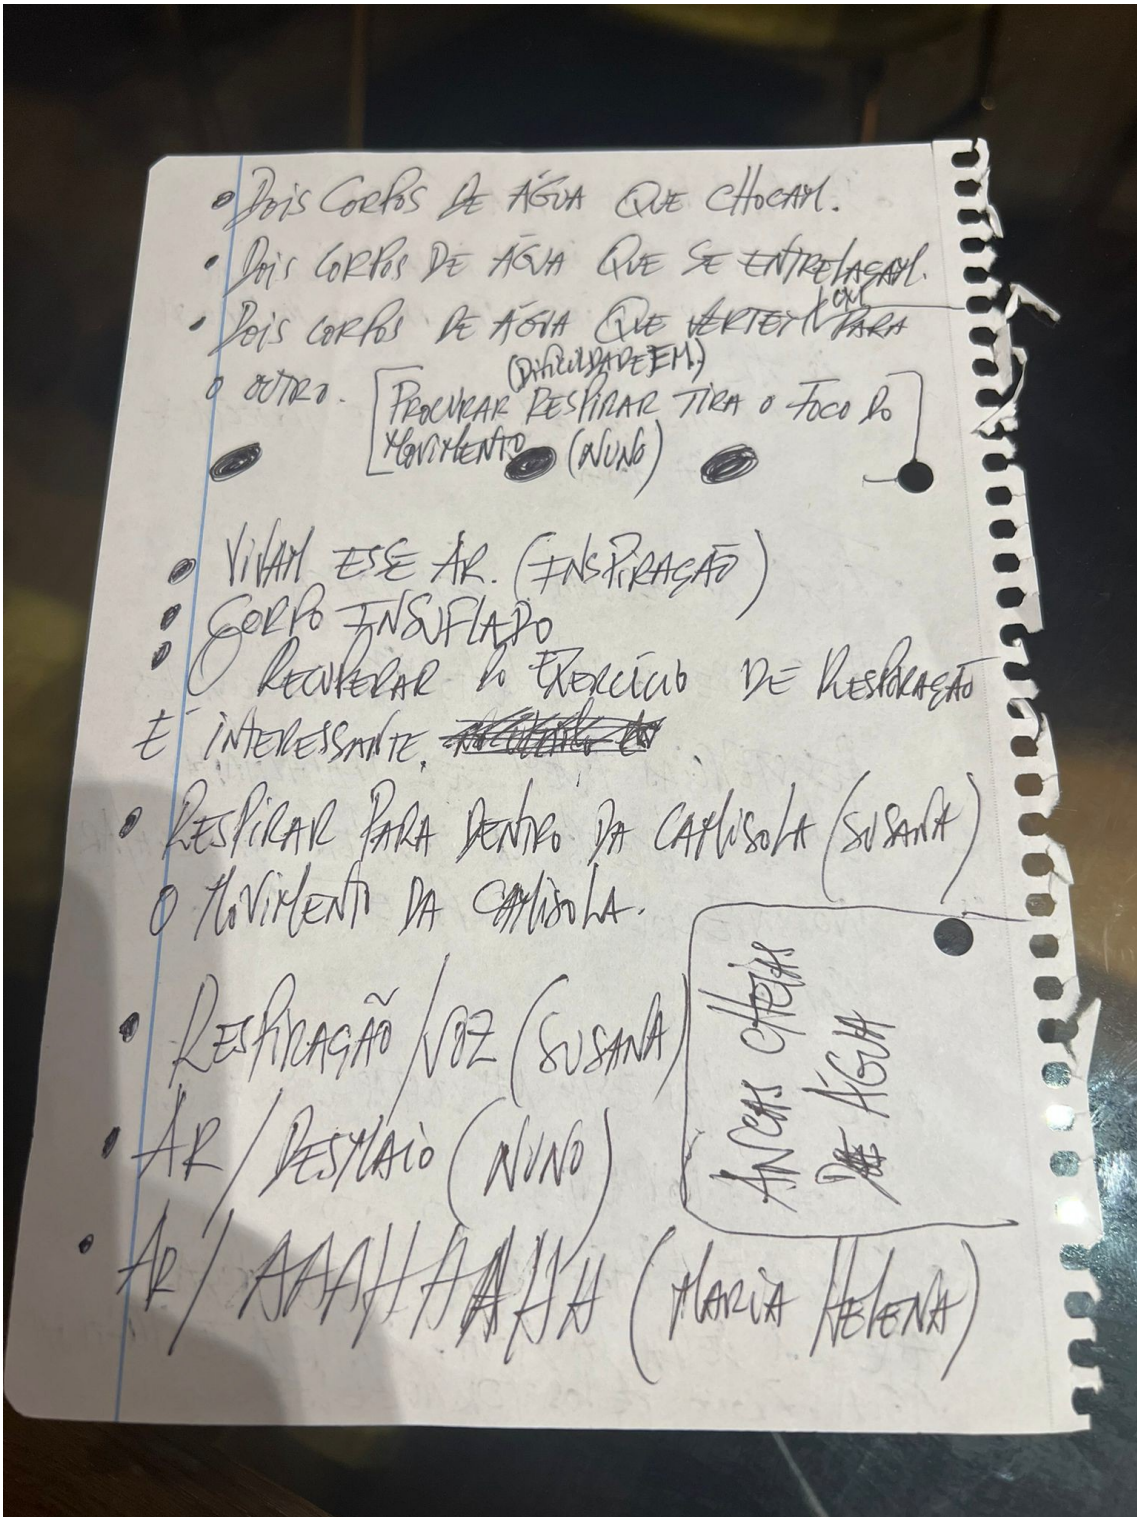 • DOIS CORPOS DE ÁGUA QUE CHOCAM.
• DOIS CORPOS DE ÁGUA QUE SE ENTRELAÇAM.
• DOIS CORPOS DE ÁGUA QUE VERTEM PARA
O OUTRO.
(DIFICULDADE EM)
PROCURAR RESPIRAR TIRA O FOCO DO
MOVIMENTO (NUNO)
• VIVAM ESSE AR. (INSPIRAÇÃO)
• CORPO INSUFLADO
• O RECUPERAR DO EXERCÍCIO DE RESPIRAÇÃO
É INTERESSANTE.
• RESPIRAR PARA DENTRO DA CAMISOLA (SUSANA)
O MOVIMENTO DA CAMISOLA.
• RESPIRAÇÃO / VOZ (SUSANA)
• AR / DESMAIO (NUNO)
• AR / AAAHHAHH (MARIA HELENA)
ANCAS CHEIAS
DE ÁGUA